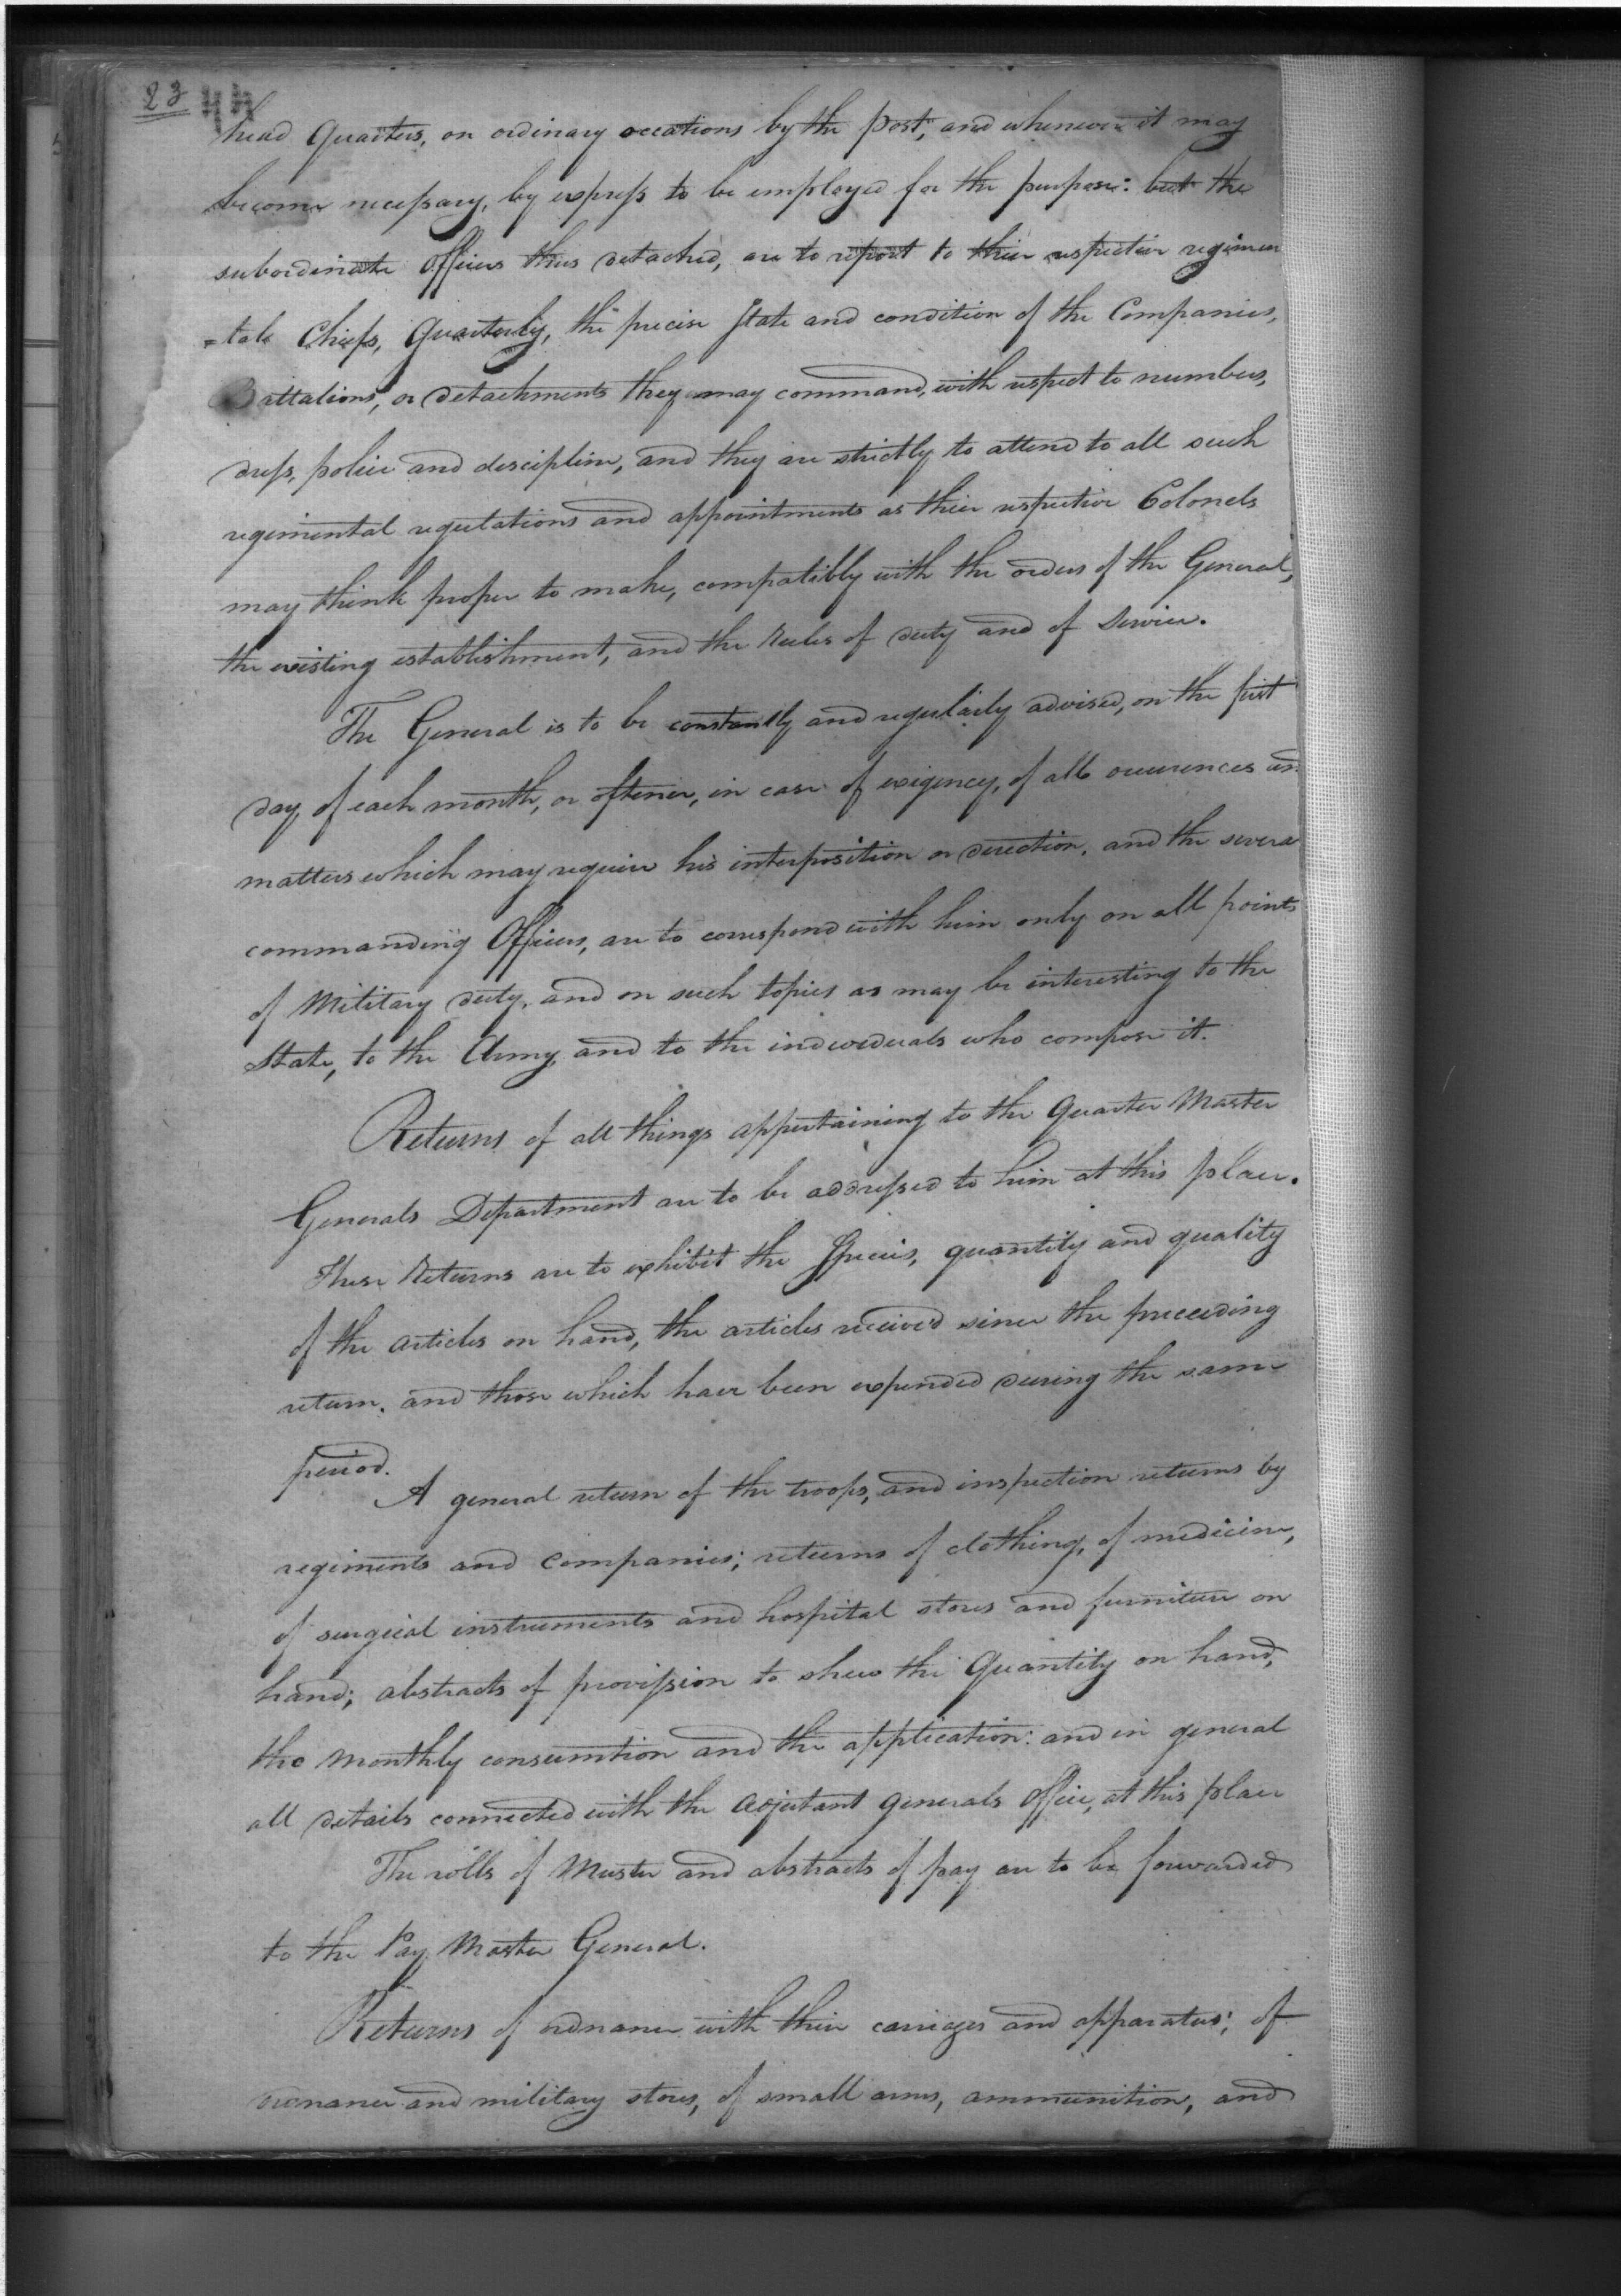 23 44
head Quarters, on ordinary occations by the post, and whenever it may
become necessary, by express to be employed for the purpose: but the
subordinate Officers thus detached, are to report to their respective regimen
=tal Chiefs, Quarterly, the precise State and condition of the Companies,
Battalions, or detachments they may command, with respect to numbers,
dress, police and discipline, and they are strictly to attend to all such
regimental regulations and appointments as their respective Colonels
may think proper to make, compatibly with the orders of the General,
the existing establishment, and the Rules of duty and of Service.
The General is to be constantly and regularly advised, on the first
day of each month, or oftener, in case of exigency, of all occurrences an
matters which may require his interposition or direction, and the severa
commanding Officers, are to correspond with him only on all points
of Military duty, and on such topics as may be interesting to the
State, to the Army, and to the individuals who compose it.
Returns of all things appertaining to the Quarter Master
Generals Department are to be addressed to him at this place.
These Returns are to exhibit the Species, quantity and quality
of the articles on hand, the articles received since the preceeding
return, and those which have been expended during the same
period.
A general return of the troops, and inspection returns by
regiments and Companies; returns of clothing, of medicine,
of surgical instruments and hospital stores and furniture on
hand; abstracts of provision to shew the Quantity on hand,
the monthly consumtion and the application: and in general
all details connected with the Adjutant Generals Office, at this place
The rolls of Muster and abstracts of pay are to be forwarded
to the Pay Master General.
Returns of ordnance with their carriages and apparatus; of
ordnance and military stores, of small arms, ammunition, and